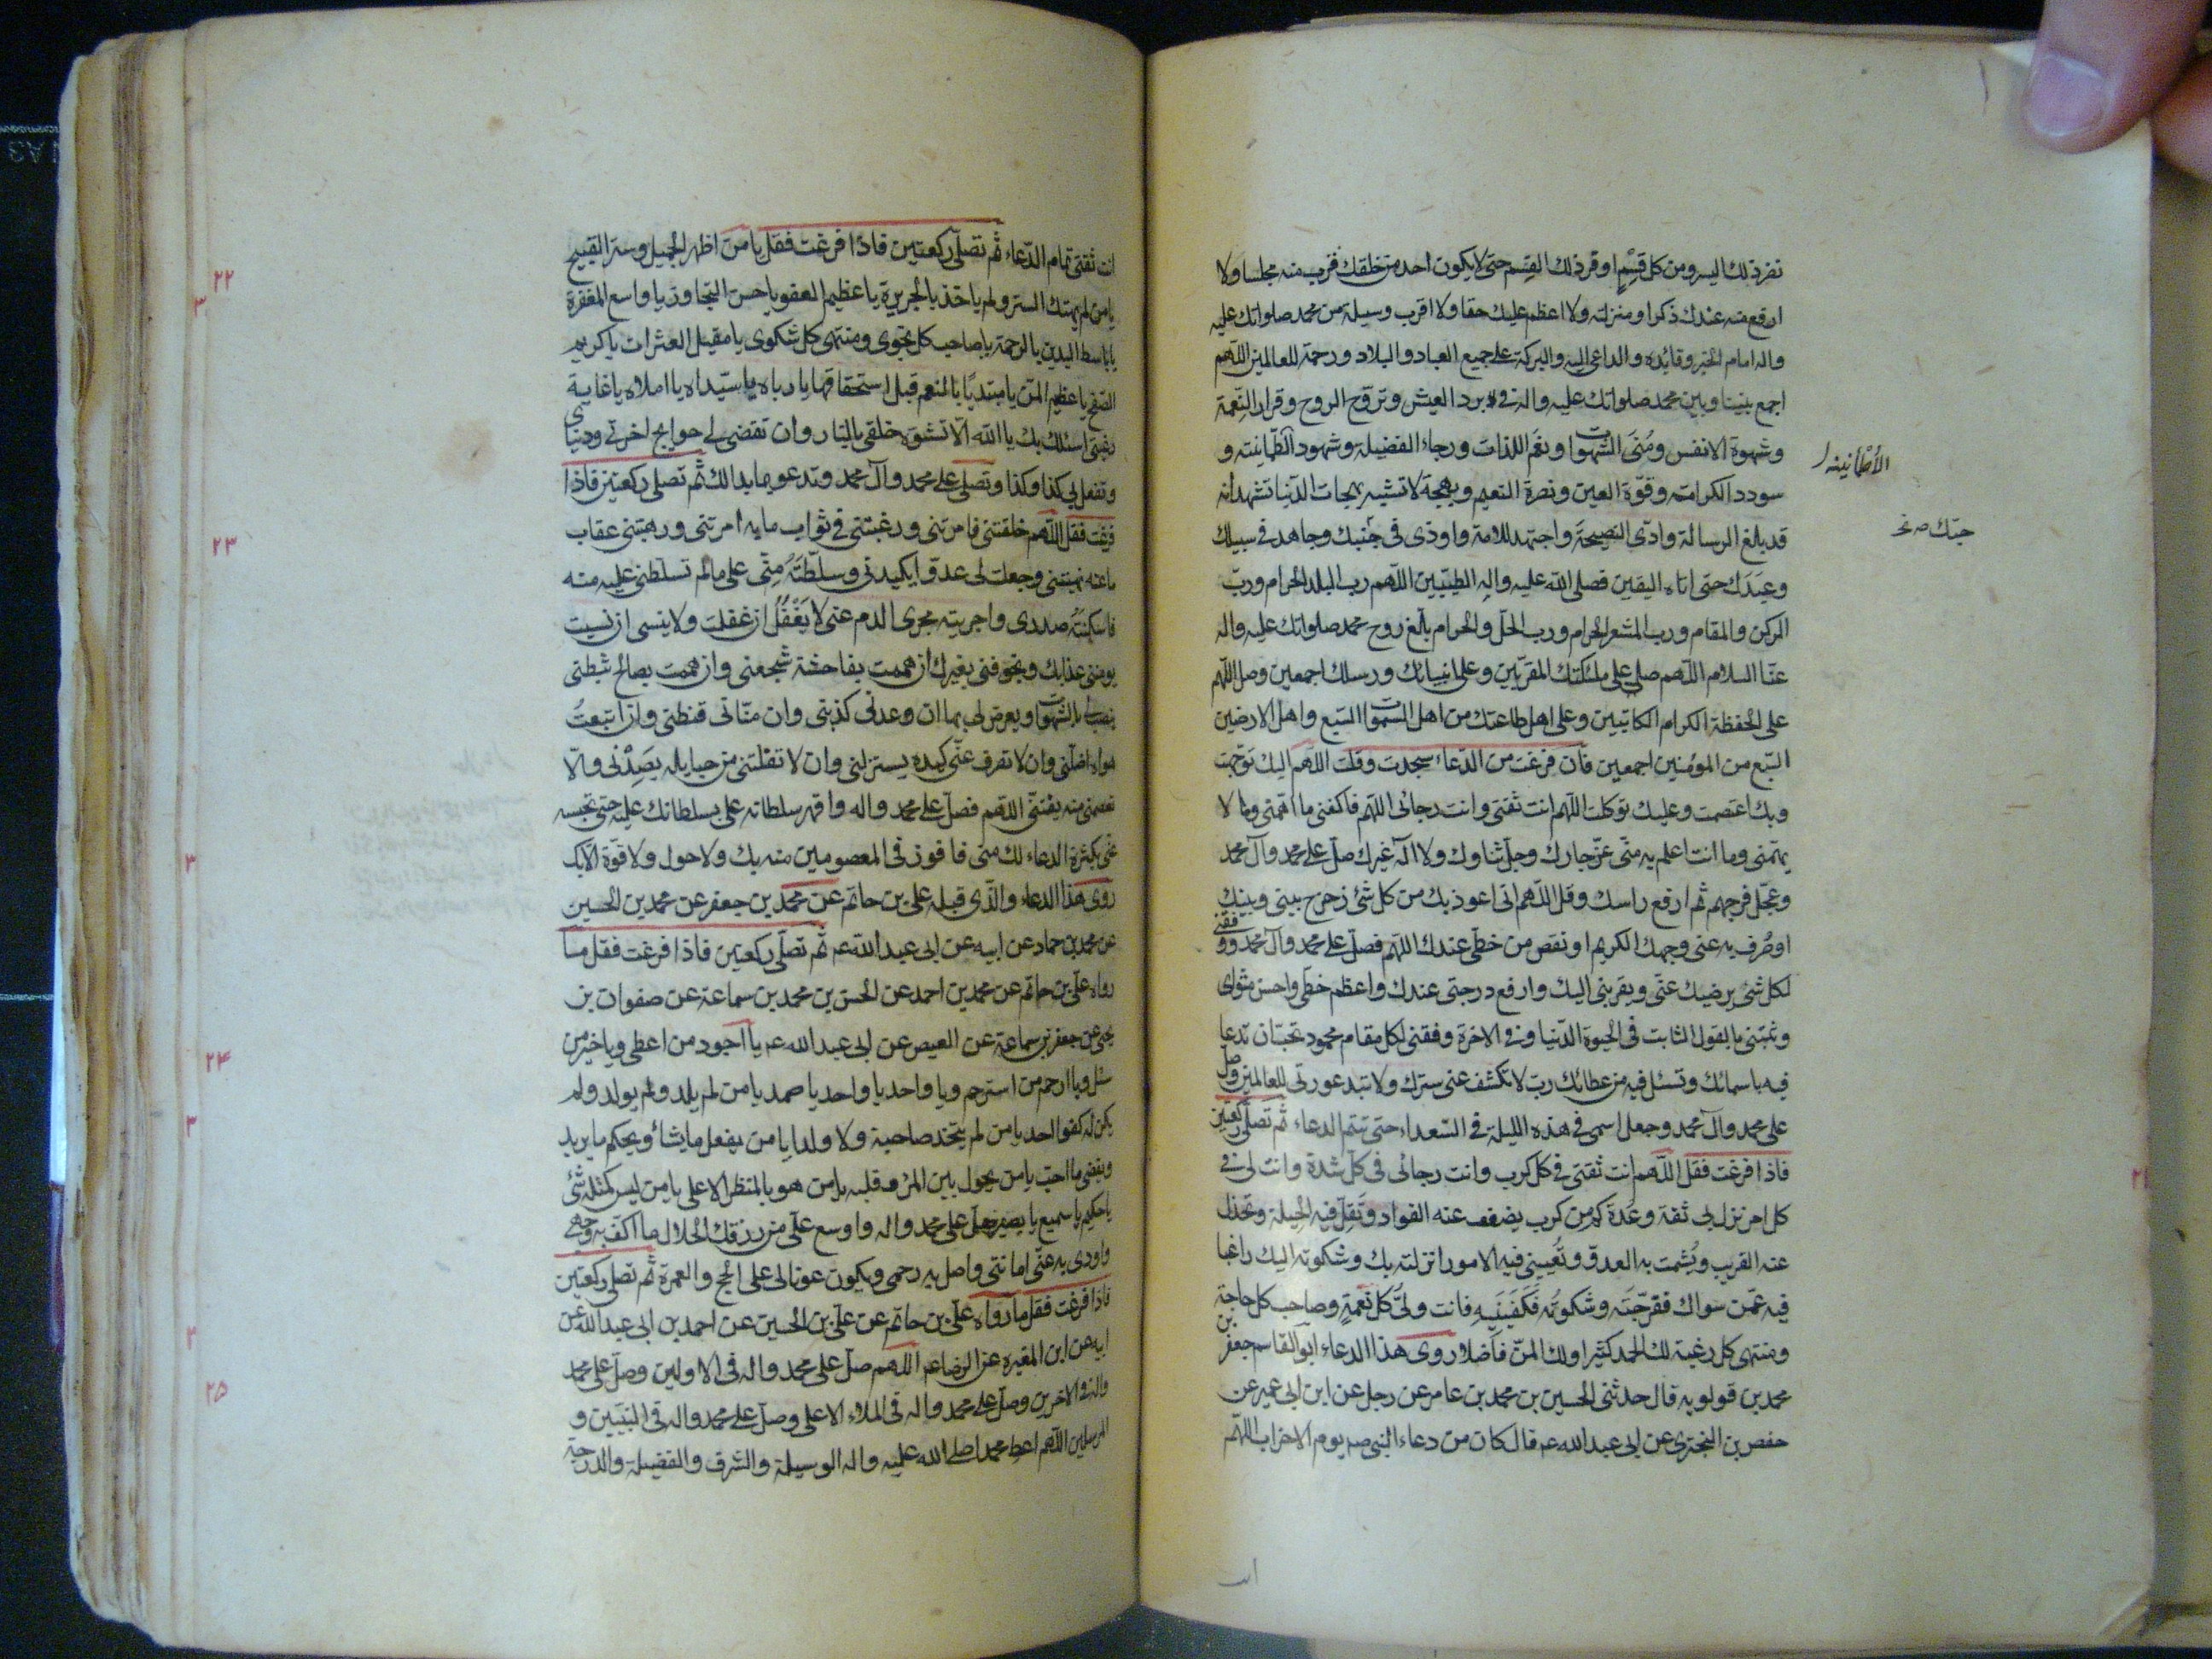 تفرد ذلك اليسر ومن كل قِسْمٍ اوفر ذلك القِسم حتى لا يكون احد من خلقك اقرب منه مجلسا ولا
ارفع منه عندك ذكرا ومنزلته ولا اعظم عليك حقا ولا اقرب وسيلة من محمد صلواتك عليه
واله امام الخير وقائده والداعى اليه والبركة على جميع العباد والبلاد ورحمة للعالمين اللهم
اجمع بيننا وبين محمد صلواتك عليه واله فى برد العيش وتروّح الروح وقرار النِّعمة
وشهوة الانفس ومُنَى الشهوات ونِعَم اللذات ورجاء الفضيلة وشهود الطمانينة و
الاُطْمَأنينه
سودد الكرامة وقرّة العين ونضرة النعيم وبهجة لا تشبه بهجات الدّنيا نشهد انه
قد بلغ الرسالة وادّى النصيحَةَ واجتهد للامة واوذى فى جَنْبك وجاهد فى سبيلك
حبّك ص نخ
وعبدَك حتى اتاه اليقين فصلى الله عليه واله الطيّبين اللّهم رب البلد الحرام وربّ
الركن والمقام ورب المشعر الحرام ورب الحل والحرام بلّغ روح محمد صلواتك عليه واله
عنّا السلام اللّهم صلى على ملئكتك المقرّبين وعلى انبيائك ورسلك اجمعين وصل اللهم
على الحفظة الكرام الكاتبين وعلى اهل طاعتك من اهل السموات السّبع واهل الارضين
السّبع من المؤمنين اجمعين فان فرغت من الدّعاء سجدت وقلت اللّهم اليك توجّهت
وبك اعتصمت وعليك توكلت اللّهم انت ثقتى وانت رجائى اللّهم فاكفنى ما اهمّنى وما لا
يهمّنى وما انت اعلم به منّى عزّ جارك وجلّ ثناوك ولا اله غيرك صلّ على محمد وآل محمد
وعجّل فرجهم ثم ارفع راسك وقل اللّهم انى اعوذ بك من كل شئ زحزح بينى وبينك
او صُرف به عنى وجهك الكريم او نقص من حظّى عندك اللّهم فصلّ على محمد وآل محمد ووفقنى
لكل شئ يرضيك عنّى ويقربنى اليك وارفع درجتى عندك واعظم حظّى واحسن مثواى
وثبّتنى بالقول الثابت فى الحيوة الدّنيا وفى الاخرة ووفقنى لكل مقام محمود تحبّ ان تدعا
فيه باسمائك وتسئل فيه من عطائك ربّ لا تكشف عنى سترك ولا تبد عورتى للعالمين وصل
على محمد وآل محمد وجعل اسمى فى هذه الليلة فى السّعداء حتى تتمّ الدعاء ثم تصلّى ركعتين
فاذا فرغت فقل اللّهم انت ثقتى فى كل كرب وانت رجائى فى كلّ شدة وانت لى فى
كل امر نزل بى ثقة وعُدة كم من كرب يضعف عنه الفواد وتَقِلّ فيه الحيلة وتخذل
عنه القريب ويُشمت به العدوّ وتُعيينى فيه الامور انزلته بك وشكوته اليك راغبا
فيه عمّن سواك ففرّجتَه وشكوتُه فكَفيتَنيه فانت ولىّ كل نعمةٍ وصاحب كل حاجة
ومنتهى كل رغبة لك الحمد كثيرا ولك المنّ فاضلا روى هذا الدعاء ابو القاسم جعفر بن
محمد بن قولويه قال حدثنى الحسين بن محمد بن عامر عن رجل عن ابن ابى عمير عن
حفص بن البخترى عن ابى عبد الله عم قال كان من دعاء النبى ص يوم الاحزاب اللّهم
انت
انت ثقتى تمام الدّعاء ثم تصلّى ركعتين فاذا فرغت فقل يا من اظهر الجميل وستر القبيح
٢٢
يا من لم يهتك الستر ولم ياخذ بالجريرة يا عظيم العفو يا حسن التجاوز يا واسع المغفرة
٣
يا باسط اليدين بالرحمة يا صاحب كل نجوى ومنتهى كل شكوى يا مقيل العثرات يا كريم
الصّفح يا عظيم المنّ يا مبتديًا بالنعم قبل استحقاقها يا رباه يا سيّداه يا املاه يا غاية
رغبتى اسئلك بك يا الله الّا تشوّه خلقى بالنار وان تقضى لى حوايج اخرتى ودنياى
وتفعل بى كذا وكذا وتصلى على محمد وآل محمد وتدعو بما بدا لك ثم تصلى ركعتين فاذا
فرغت فقل اللّهم خلقتنى فامرتنى ورغبتنى فى ثواب ما به امرتنى ورهبتنى عقاب
٢٣
ما عنه نهيتنى وجعلت لى عدوّا يكيدنى وسلّطتَهُ منّى على ما لم تسلطنى عليه منه
فاسكنتَهُ صدرى واجريته مجرى الدم منى لا يَغْفُلُ ان غفلت ولا ينسى ان نسيت
يومننى عذابك ويخوفنى بغيرك ان هممت بفاحشة شجعنى وان هممت بصالح ثبطنى
ينصب لى بالشهوات ويعرض لى بها ان وعدنى كذبنى وان منّانى قنطنى وان اتبعتُ
هواه اضلّنى وان لا تصرف عنّى كيده يستزلنى وان لا تفلتنى من حبايله يَصِدْنى والّا
تعصمنى منه يفتنّى اللّهم فصلّ على محمد واله واقهر سلطانه على بسلطانك عليه حتى تحبسه
عنى بكثرة الدعاء لك منى فافوز فى المعصومين منه بك ولا حول ولا قوّة الّا بك
٣
روى هذا الدعاء والّذى قبله على بن حاتم عن محمد بن جعفر عن محمد بن الحسين
عن محمد بن حماد عن ابيه عن ابى عبد الله عم ثم تصلّى ركعتين فاذا فرغت فقل ما
رواه علىّ بن حاتم عن محمد بن احمد عن الحسن بن محمد بن سماعة عن صفوان بن
يحيى عن جعفر بن سماعة عن العيص عن ابى عبد الله عم يا اجود من اعطى ويا خير من
٢٤
سئل ويا ارحم من استرحم ويا واحد يا واحد يا صمد يا من لم يلد ولم يولد ولم
يكن له كفوا احد يا من لم يتّخذ صاحبة ولا ولدا يا من يفعل ما يشاء ويحكم ما يريد
٣
ويقضى ما احبّ يا من يحول بين المرء وقلبه يا من هو بالمنظر الاعلى يا من ليس كمثله شئ
يا حكيم يا سميع يا بصير صلّ على محمد واله واوسع علىّ من رزقك الحلال ما اكفّ به وجهى
واودى به عنّى امانتى واصل به رحمى ويكون عونا لى على الحج والعمرة ثم تصلى ركعتين
فاذا فرغت فقل ما رواه علىّ بن حاتم عن علىّ بن الحسين عن احمد بن ابى عبد الله عن
٣
ابيه عن ابن المغيره عن الرضا عم اللّهم صلّ على محمد واله فى الاولين وصلّ على محمد
٢٥
واله فى الاخرين وصلّ على محمد واله فى الملاء الاعلى وصلّ على محمد واله فى النبيّين و
المرسلين اللّهم اعط محمدا صلى الله عليه واله الوسيلة والشرف والفضيلة والدرجة